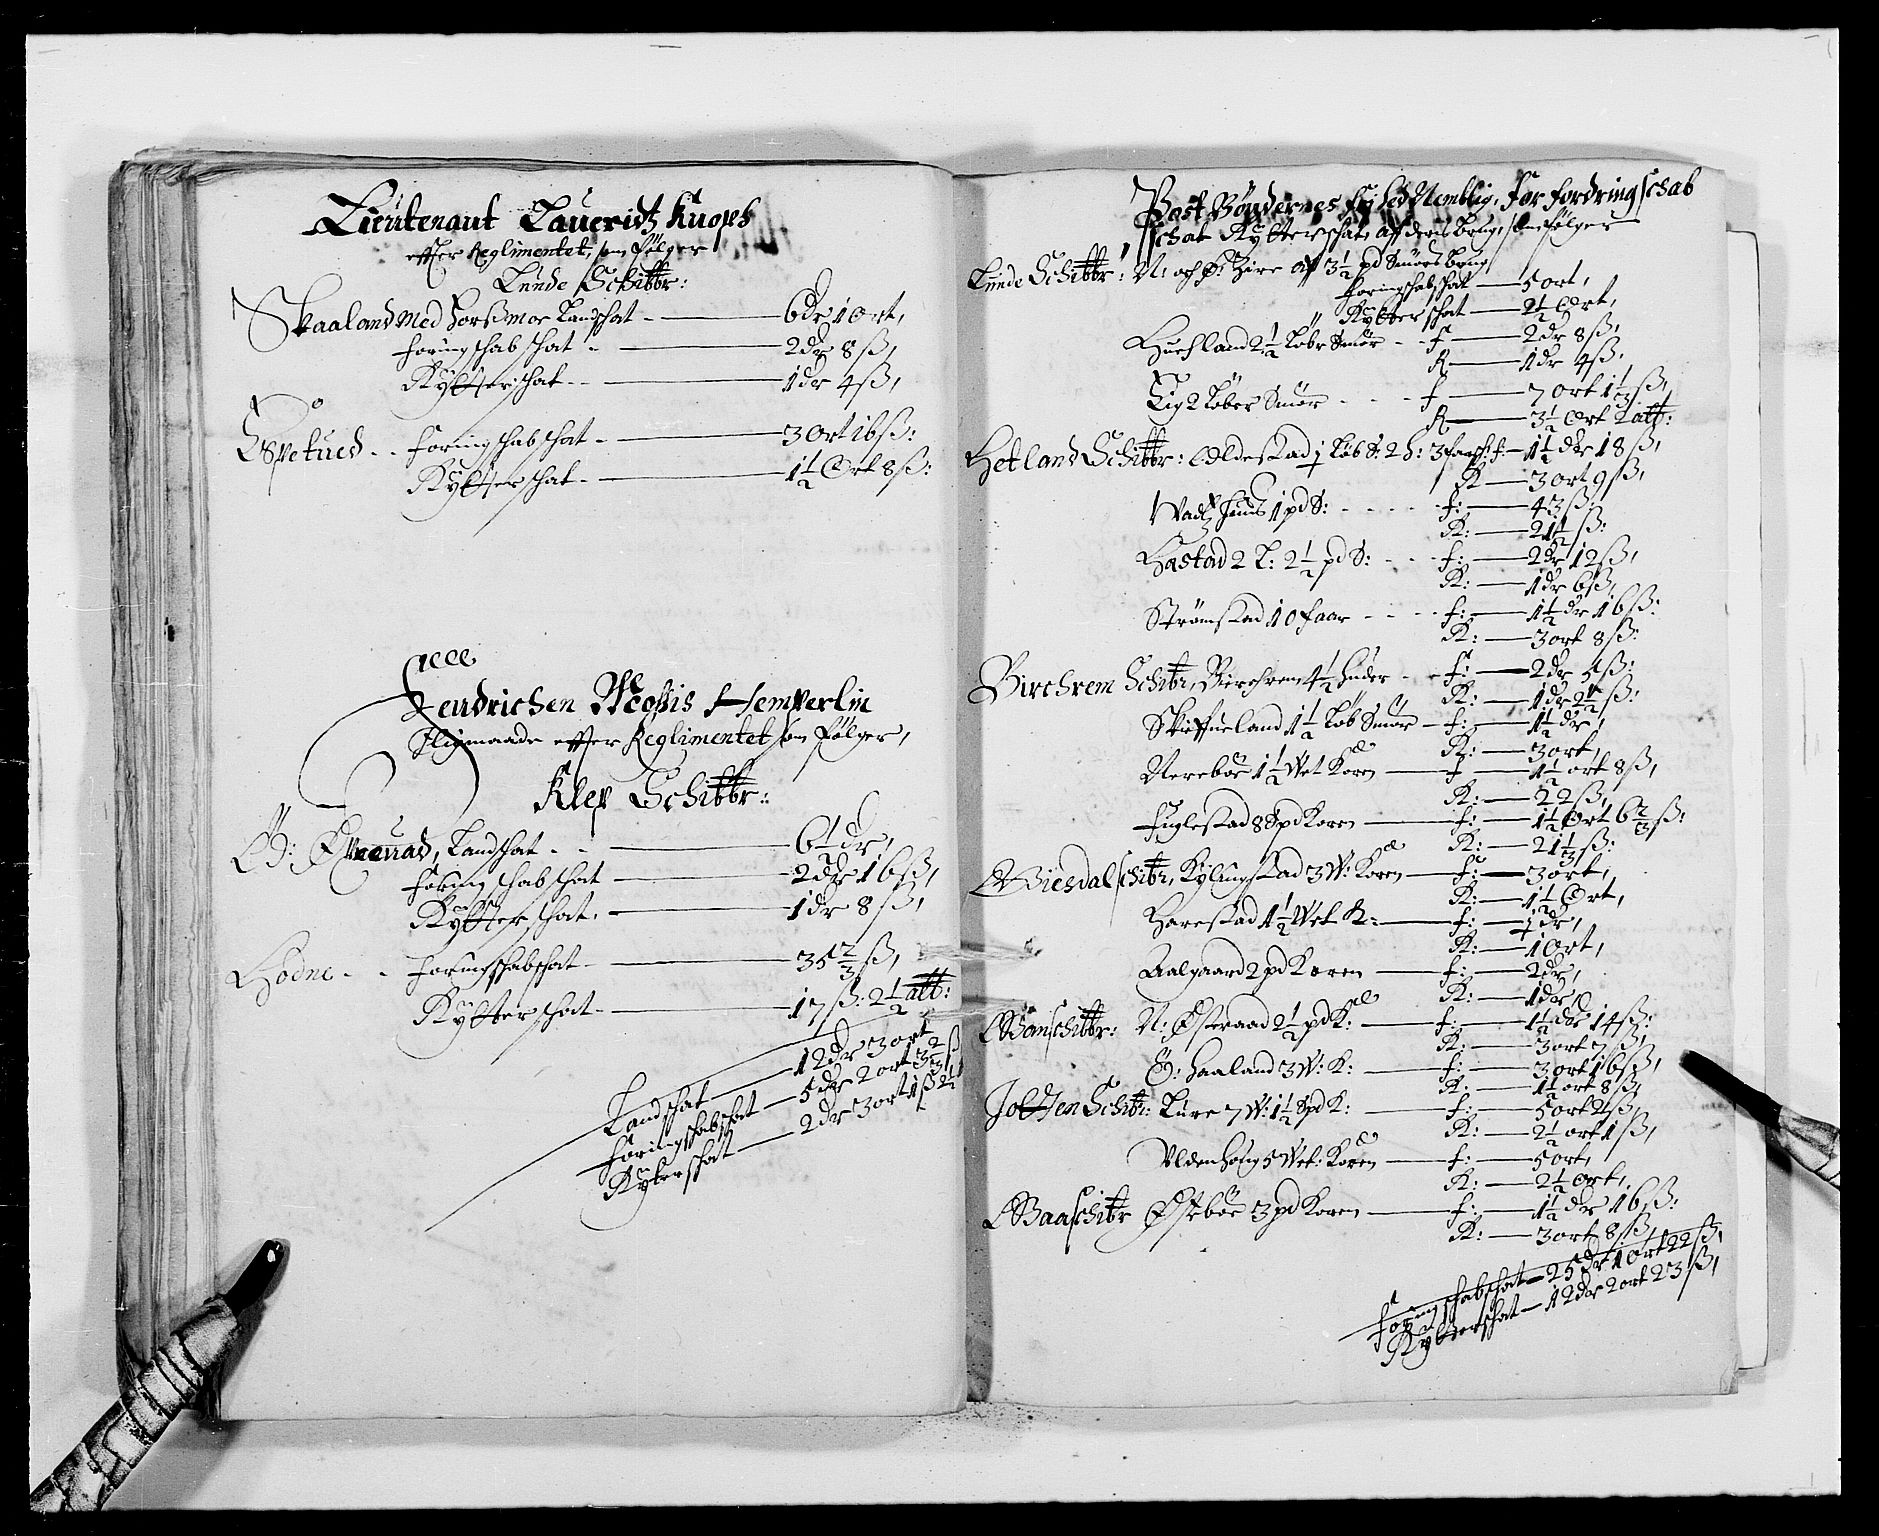 Lieutenant Laueridtz Knophs
effter Reglimentet, som Følger
Lunde Schibbr:
Skaaland Med Horsmoe Landschat — 6 dr 1 Ort,
foringschabschat — 2 dr 8 ß,
Rytterschat — 1 dr 4 ß,
Espetued - - foringschabschat — 3 Ort 16 ß:
Rytterschat — 1½ Ort 8 ß:
Fendrichen Mosis Hemperlin
Sligmaade effter Reglimentet som følger,
Klep Schibbr:
Ø: Øxeuad, Landschat — 6½ dr,
foringschabschat — 2 dr 16 ß,
Rytterschat — 1 dr 8 ß,
Hodne - - foringschabschat — 35⅔ ß,
Rytterschat — 17 ß: 2½ alb:
Landschat — 12 dr 3 ort
foringschabschat — 5 dr 2 ort 3⅔ ß
Rytterschat — 2 dr 3 ort 1 ß 2½
Post Bøndernes Nemblig, For fordringschab
schat Rytterschat, aff deris brug, som følger
Lunde Schibbr: N: och Ø: Eire aff 3½ pd Smørs brug
foringschabschat — 5 ort,
Rytterschat — 2½ Ort,
Huchland 2½ Løbr Smør - - f — 2 dr 8 ß,
R — 1 dr 4 ß,
Eig 2 Løber Smør - - - f — 7 ort 1⅓ ß,
R — 3½ Ort 2 alb:
Hetland Schibbr: Oldestad j Løb S: 2 h: 3 faar f: — 1½ dr 18 ß,
R — 3 ort 9 ß,
Wadtzhuus 1 pd S: - - - - f: — 43 ß:
R: — 21½ ß:
Hastad 2 L: 2½ pd S: - - - f: — 2 dr 12 ß,
R: — 1 dr 6 ß,
Strømstad 10 faar - - - f: — 1½ dr 16 ß:
R: — 3 ort 8 ß:
Birchrem Schibr, Birchrem 4½ huder - - f: — 2 dr 5 ß:
R: — 1 dr 2½ ß:
Skieffueland 1½ Løb Smør — f: — 1½ dr,
R: — 3 ort,
Nerebøe 1½ Wet Koren — f — 1½ ort 8 ß,
R: — 22 ß,
Fuglestad 8 Spd Koren — f: — 1½ Ort 6⅔ ß:
R: — 21⅓ ß:
Giesdal schibr, Kylingstad 3 W: Koren — f: — 3 ort,
R: — 1½ Ort,
Harestad 1½ Wet K: — f: — ½ dr,
R: — 1 Ort,
Aalgaard 2 pd Koren — f: — 2 dr,
R: — 1 dr,
N: Østraad 2½ pd K: — f: — 1½ dr 14 ß:
R: — 3 ort 7 ß,
Ø: Haaland 3 W: K: — f: — 3 ort 16 ß,
R: — 1½ ort 8 ß,
Jolssen Schibr: Lure 7 W: 1½ Spd K: — f: — 5 ort 2 ß,
R: — 2½ ort 1 ß,
Uldenhoug 5 Wet: Koren — f: — 5 ort,
R: — 2½ Ort,
Haaschibr Østebøe 3 pd Koren — f: — 1½ dr 16 ß:
R: — 3 ort 8 ß,
foringschabschat — 25 dr 1 ort 22 ß,
Rytterschat — 12 dr 2 ort 23 ß,